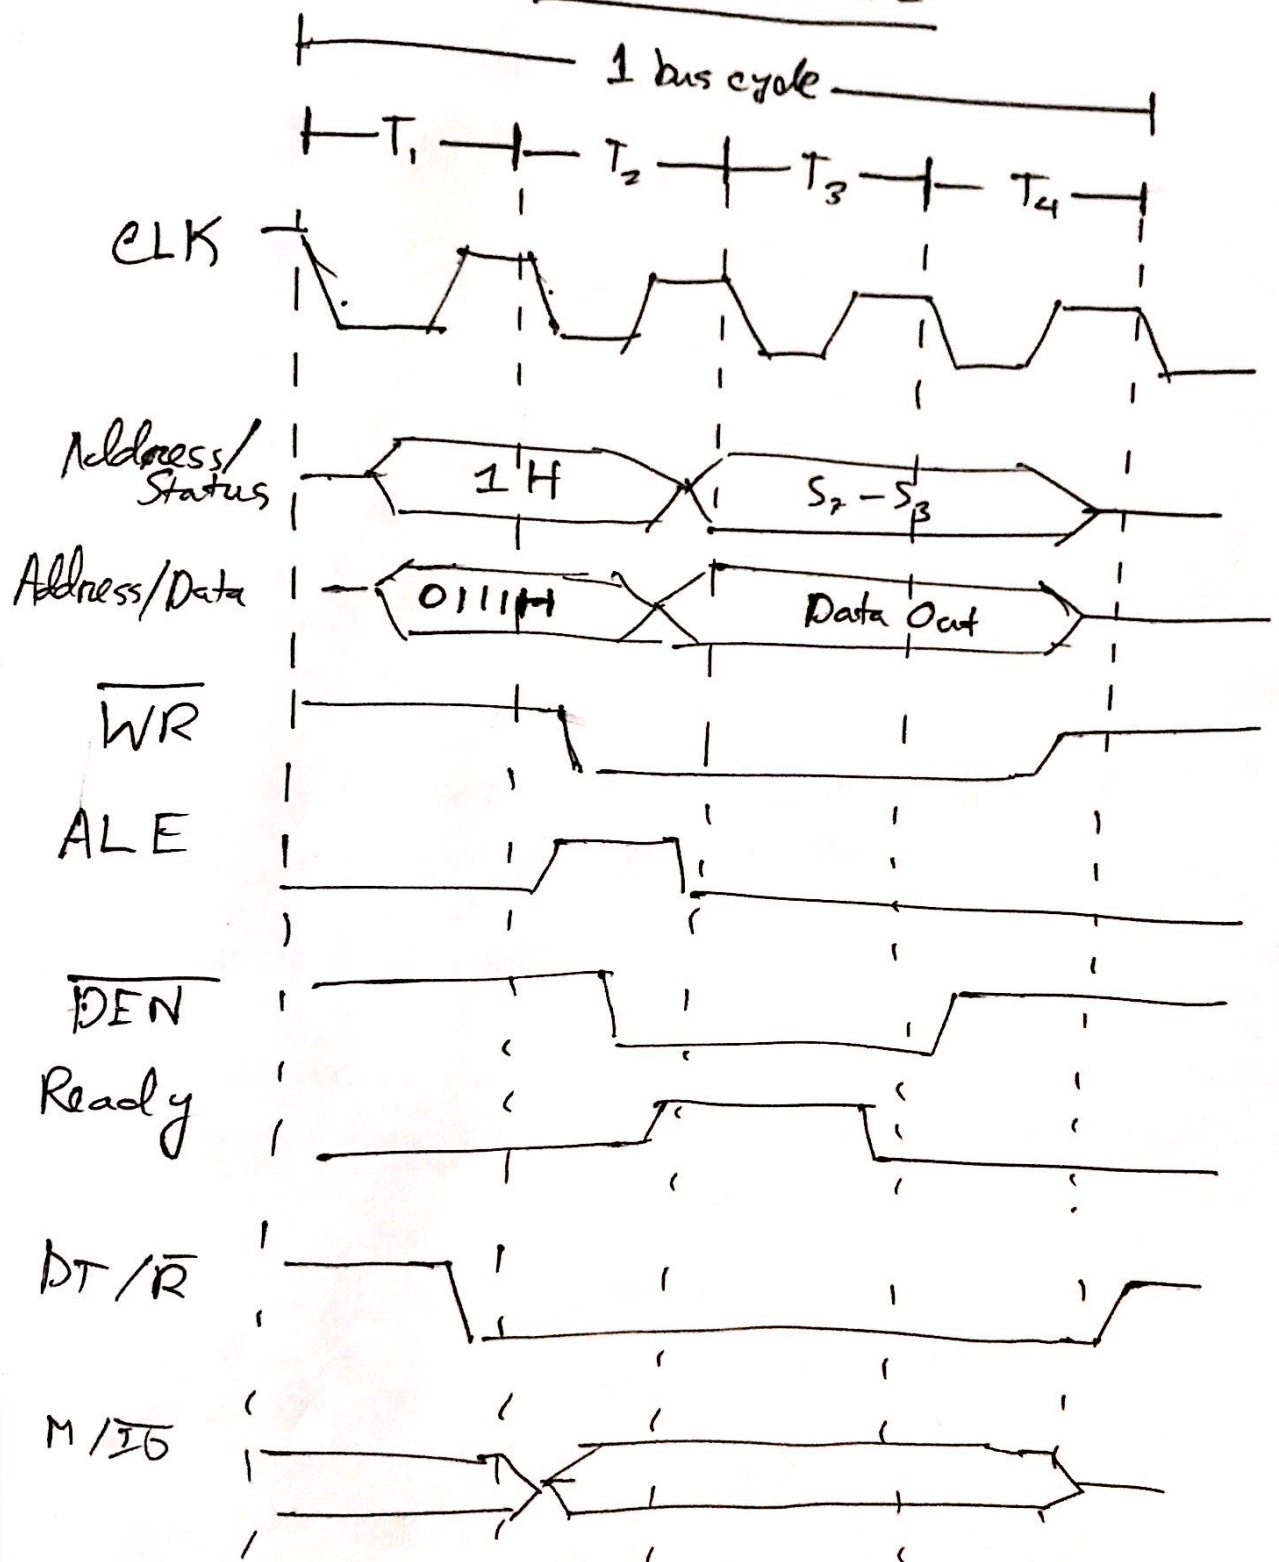 1 bus cycle
T₁ T₂ T₃ T₄
CLK
Address/
Status
1H S₇-S₃
Address/Data 0111H Data Out
W̅R̅
ALE
D̅E̅N̅
Ready
DT/R̅
M/I̅O̅